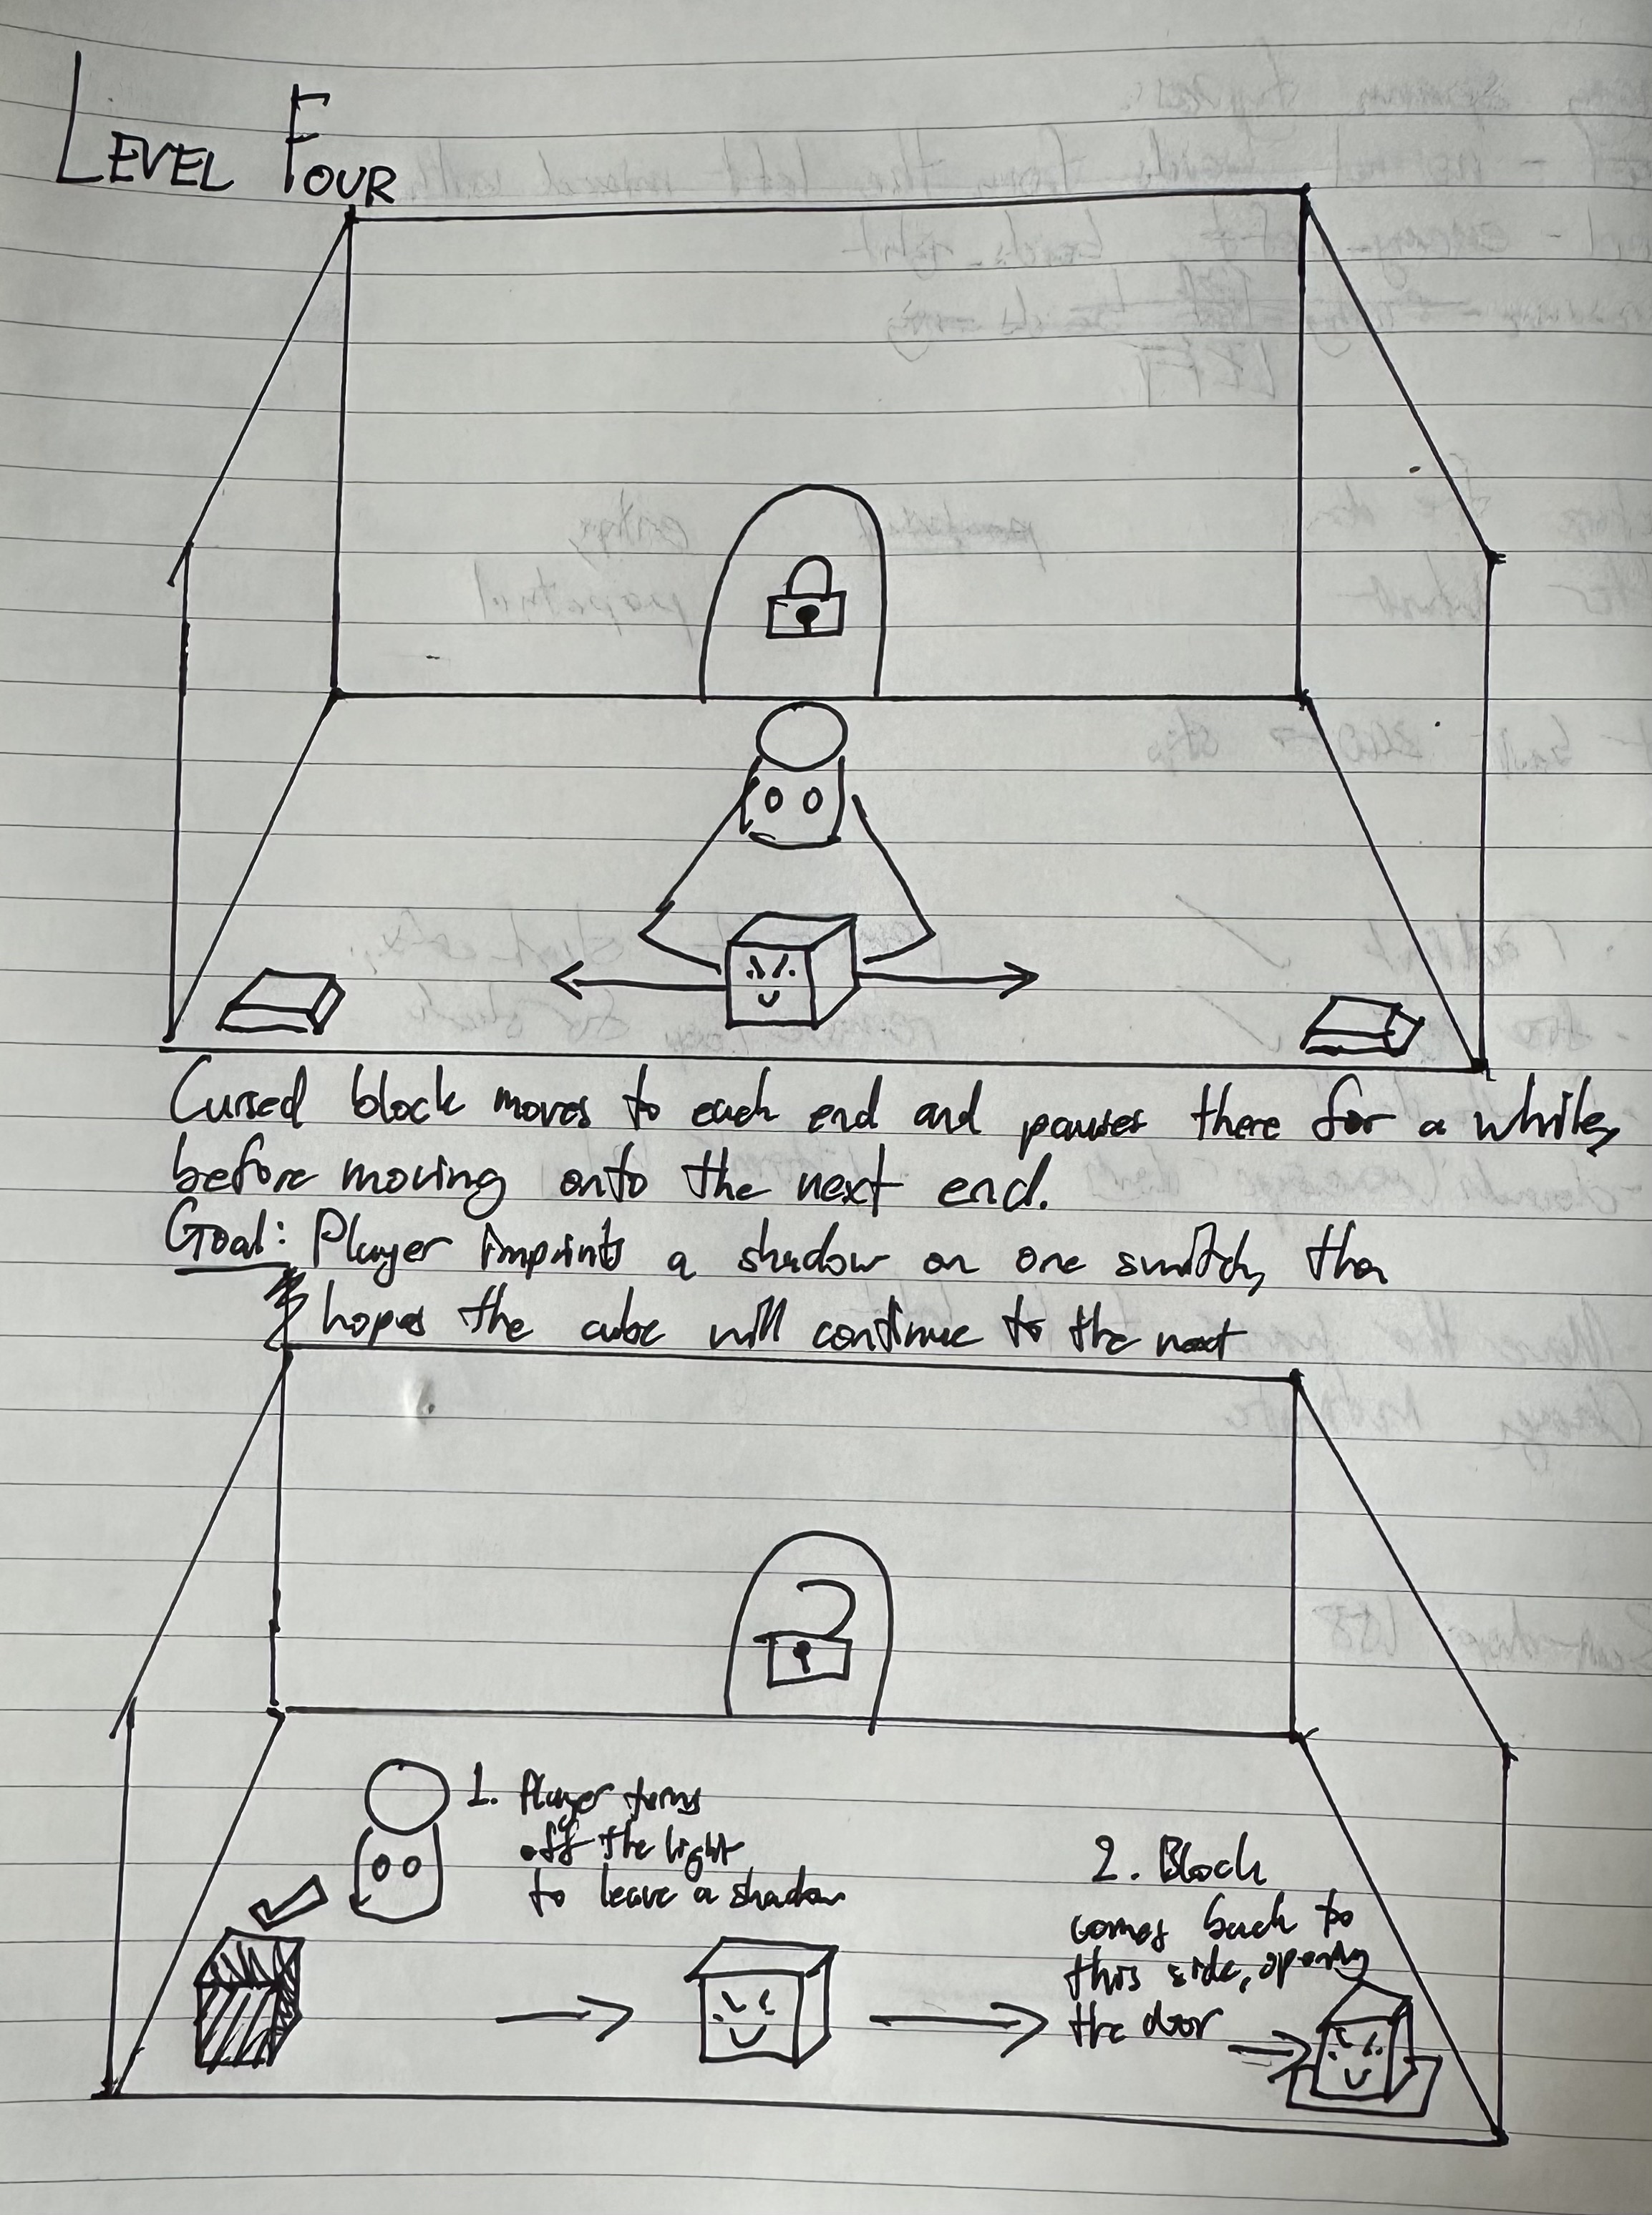 LEVEL FOUR
Cursed block moves to each end and pauses there for a while,
before moving onto the next end.
Goal: Player imprints a shadow on one switch, then
hopes the cube will continue to the next
1. Player turns
off the light
to leave a shadow
2. Block
comes back to
this side, opening
the door